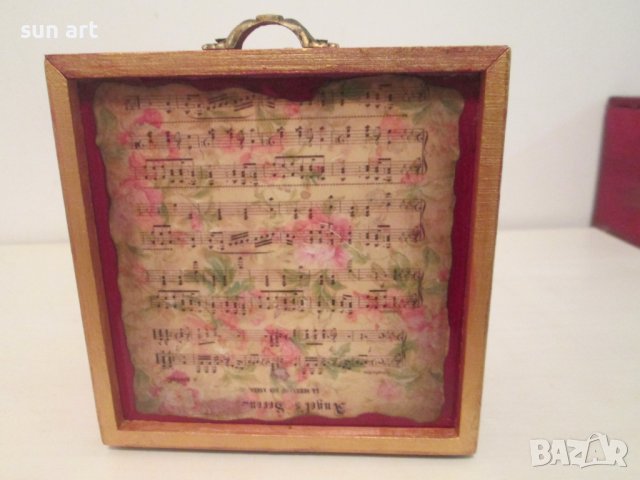 sun art
Angel's Seren
BAZAR